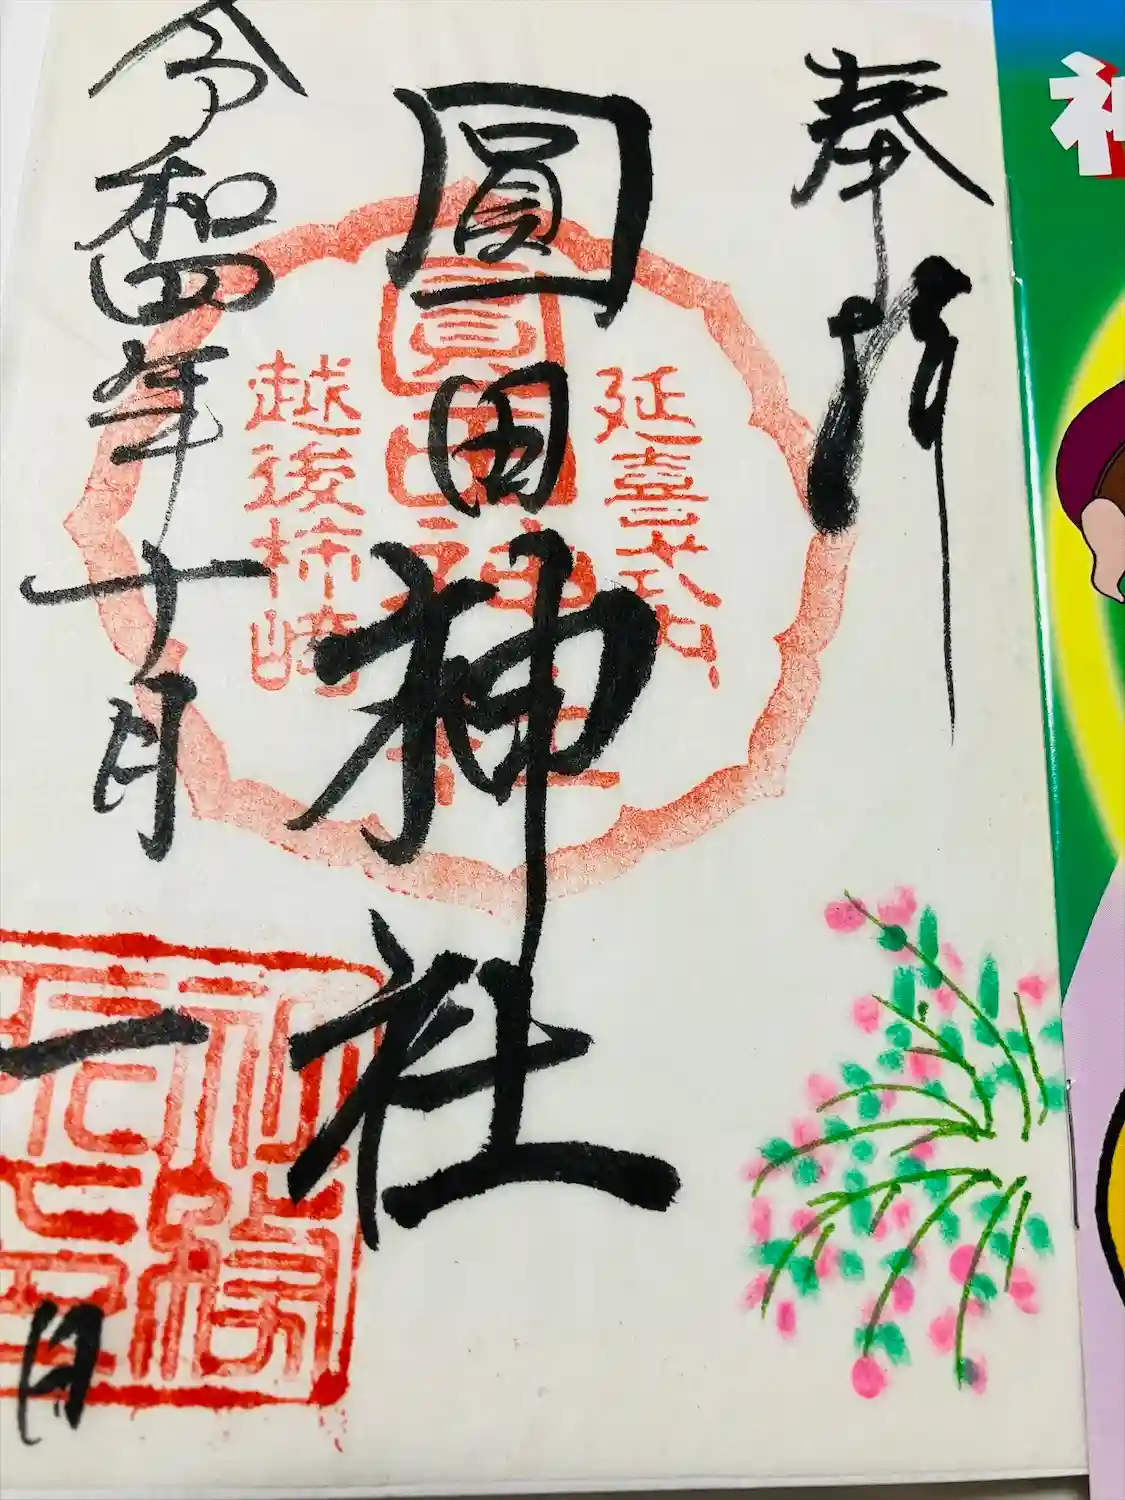 奉拝
延喜式内
圓田神社
圓田神社
越後柿崎
令和四年十月一日
神